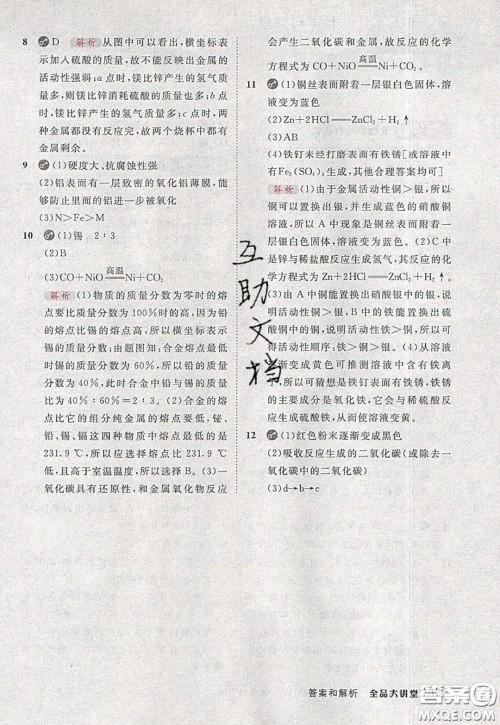 8 D 解析 从图中可以看出，横坐标表
示加入硫酸的质量，故不能反映出金属的
活动性强弱；a点时，镁比锌产生的氢气质
量多，则镁比锌消耗硫酸的质量也多；b点
时，镁比锌产生的氢气质量多，此时，两
种金属都没有反应完，故两个烧杯中都有
金属剩余。
9 (1)硬度大、抗腐蚀性强
(2)铝表面有一层致密的氧化铝薄膜，能
够防止里面的铝进一步被氧化
(3)N>Fe>M
10 (1)锡 2∶3
(2)B
(3)CO+NiO 高温 Ni+CO₂
解析 (1)物质的质量分数为零时的熔
点要比质量分数为100%时的高，因为铅
的熔点比锡的熔点高，故横坐标表示金属
锡的质量分数；由题图知：合金熔点最低
时锡的质量分数是60%，所以铅的质量
分数为40%，此时合金中铅与锡的质量
比为40%∶60%＝2∶3。(2)合金的熔点
比它的组分纯金属的熔点要低，铋、
铅、锡、镉这四种物质中熔点最低的是
231.9 ℃，所以应选择熔点比231.9 ℃
低，且高于室温温度，所以选择B。(3)一
氧化碳具有还原性，和金属氧化物反应
会产生二氧化碳和金属，故反应的化学
方程式为CO+NiO 高温 Ni+CO₂。
11 (1)铜丝表面附着一层银白色固体，溶
液变为蓝色
(2)Zn+2HCl══ZnCl₂+H₂↑
(3)AB
(4)铁钉未经打磨表面有铁锈[或溶液中
有Fe₂(SO₄)₃，其他合理答案均可]
解析 (1)由于金属活动性铜>银，所
以铜可以置换出银，并生成蓝色的硝酸铜
溶液，所以A中现象是铜丝表面附着一
层银白色固体，溶液变为蓝色。(2)C中是
锌与稀盐酸反应生成氢气，其反应的化
学方程式为Zn+2HCl══ZnCl₂+H₂↑
(3)由A中铜能置换出硝酸银中的银，说
明活动性铜>银。B中铁能置换出硫
酸铜中的铜，说明活动性铁>铜，所以可
得活动性顺序：铁>铜>银。(4)依据溶液
逐渐变成黄色可推测溶液中含有铁离
子，所以可能是铁钉表面有铁锈，铁锈
的主要成分为氧化铁，它会与稀硫酸反
应生成硫酸铁，从而使溶液变黄。
12 (1)红色粉末逐渐变成黑色
(2)吸收反应生成的二氧化碳(或除去一
氧化碳中的二氧化碳)
(3)d→b→c
互助文档
答案和解析 全品大讲堂
答案圈
MXQE.COM